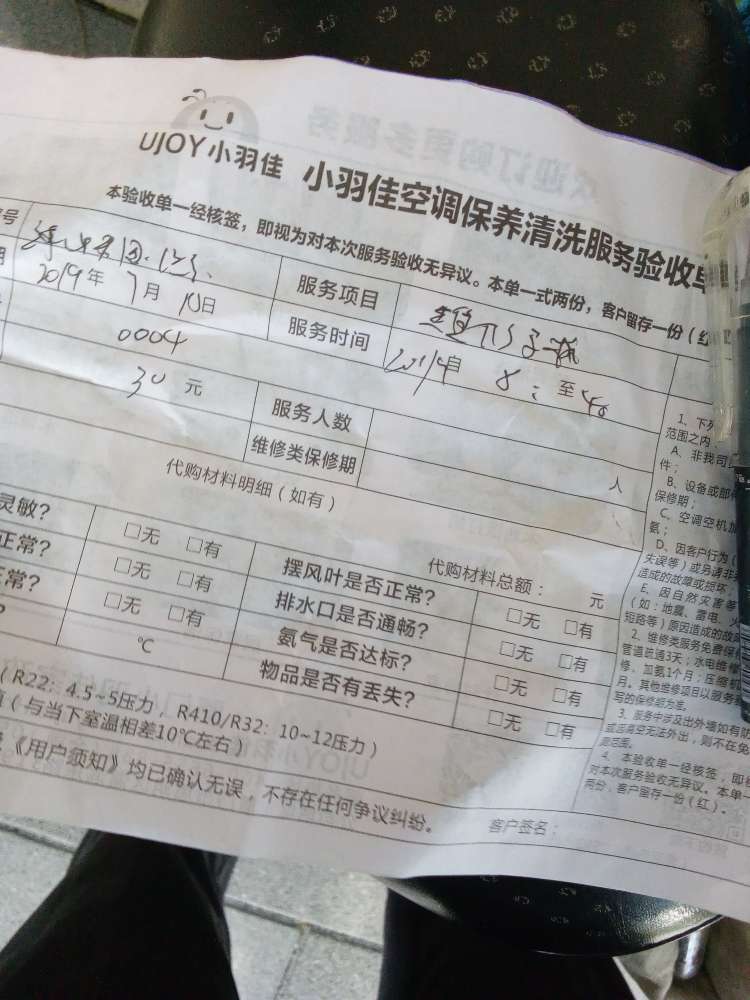 UJOY小羽佳 小羽佳空调保养清洗服务验收单
本验收单一经核签，即视为对本次服务验收无异议。本单一式两份，客户留存一份（红
号
服务项目
2019年7月10日
服务时间
自 8: 至40
0004
30元
服务人数
人
维修类保修期
代购材料明细（如有）
代购材料总额： 元
灵敏？ □无 □有 摆风叶是否正常？ □无 □有
正常？ □无 □有 排水口是否通畅？ □无 □有
常？ □无 □有 氨气是否达标？ □无 □有
？ ℃ 物品是否有丢失？ □无 □有
（R22：4.5~5压力，R410/R32：10~12压力）
（与当下室温相差10℃左右）
《用户须知》均已确认无误，不存在任何争议纠纷。
客户签名：
1、下列
范围之内
A、非我司
件；
B、设备或部件
保修期；
C、空调空机加
氨；
D、因客户行为（
失误等）或另请非
造成的故障或损坏
E、因自然灾害等
（如：地震、雷电、火
短路等）原因造成的故障
2、维修类服务免费保
管道疏通3天；水电维修
修、加氨1个月；压缩机
月。其他维修项目以服务
写的保修期为准。
3、服务中涉及出外墙如有防
或远高空无法外出，则不在免
4、本验收单一经核签，即
对本次服务验收无异议。本单一
两份，客户留存一份（红）。